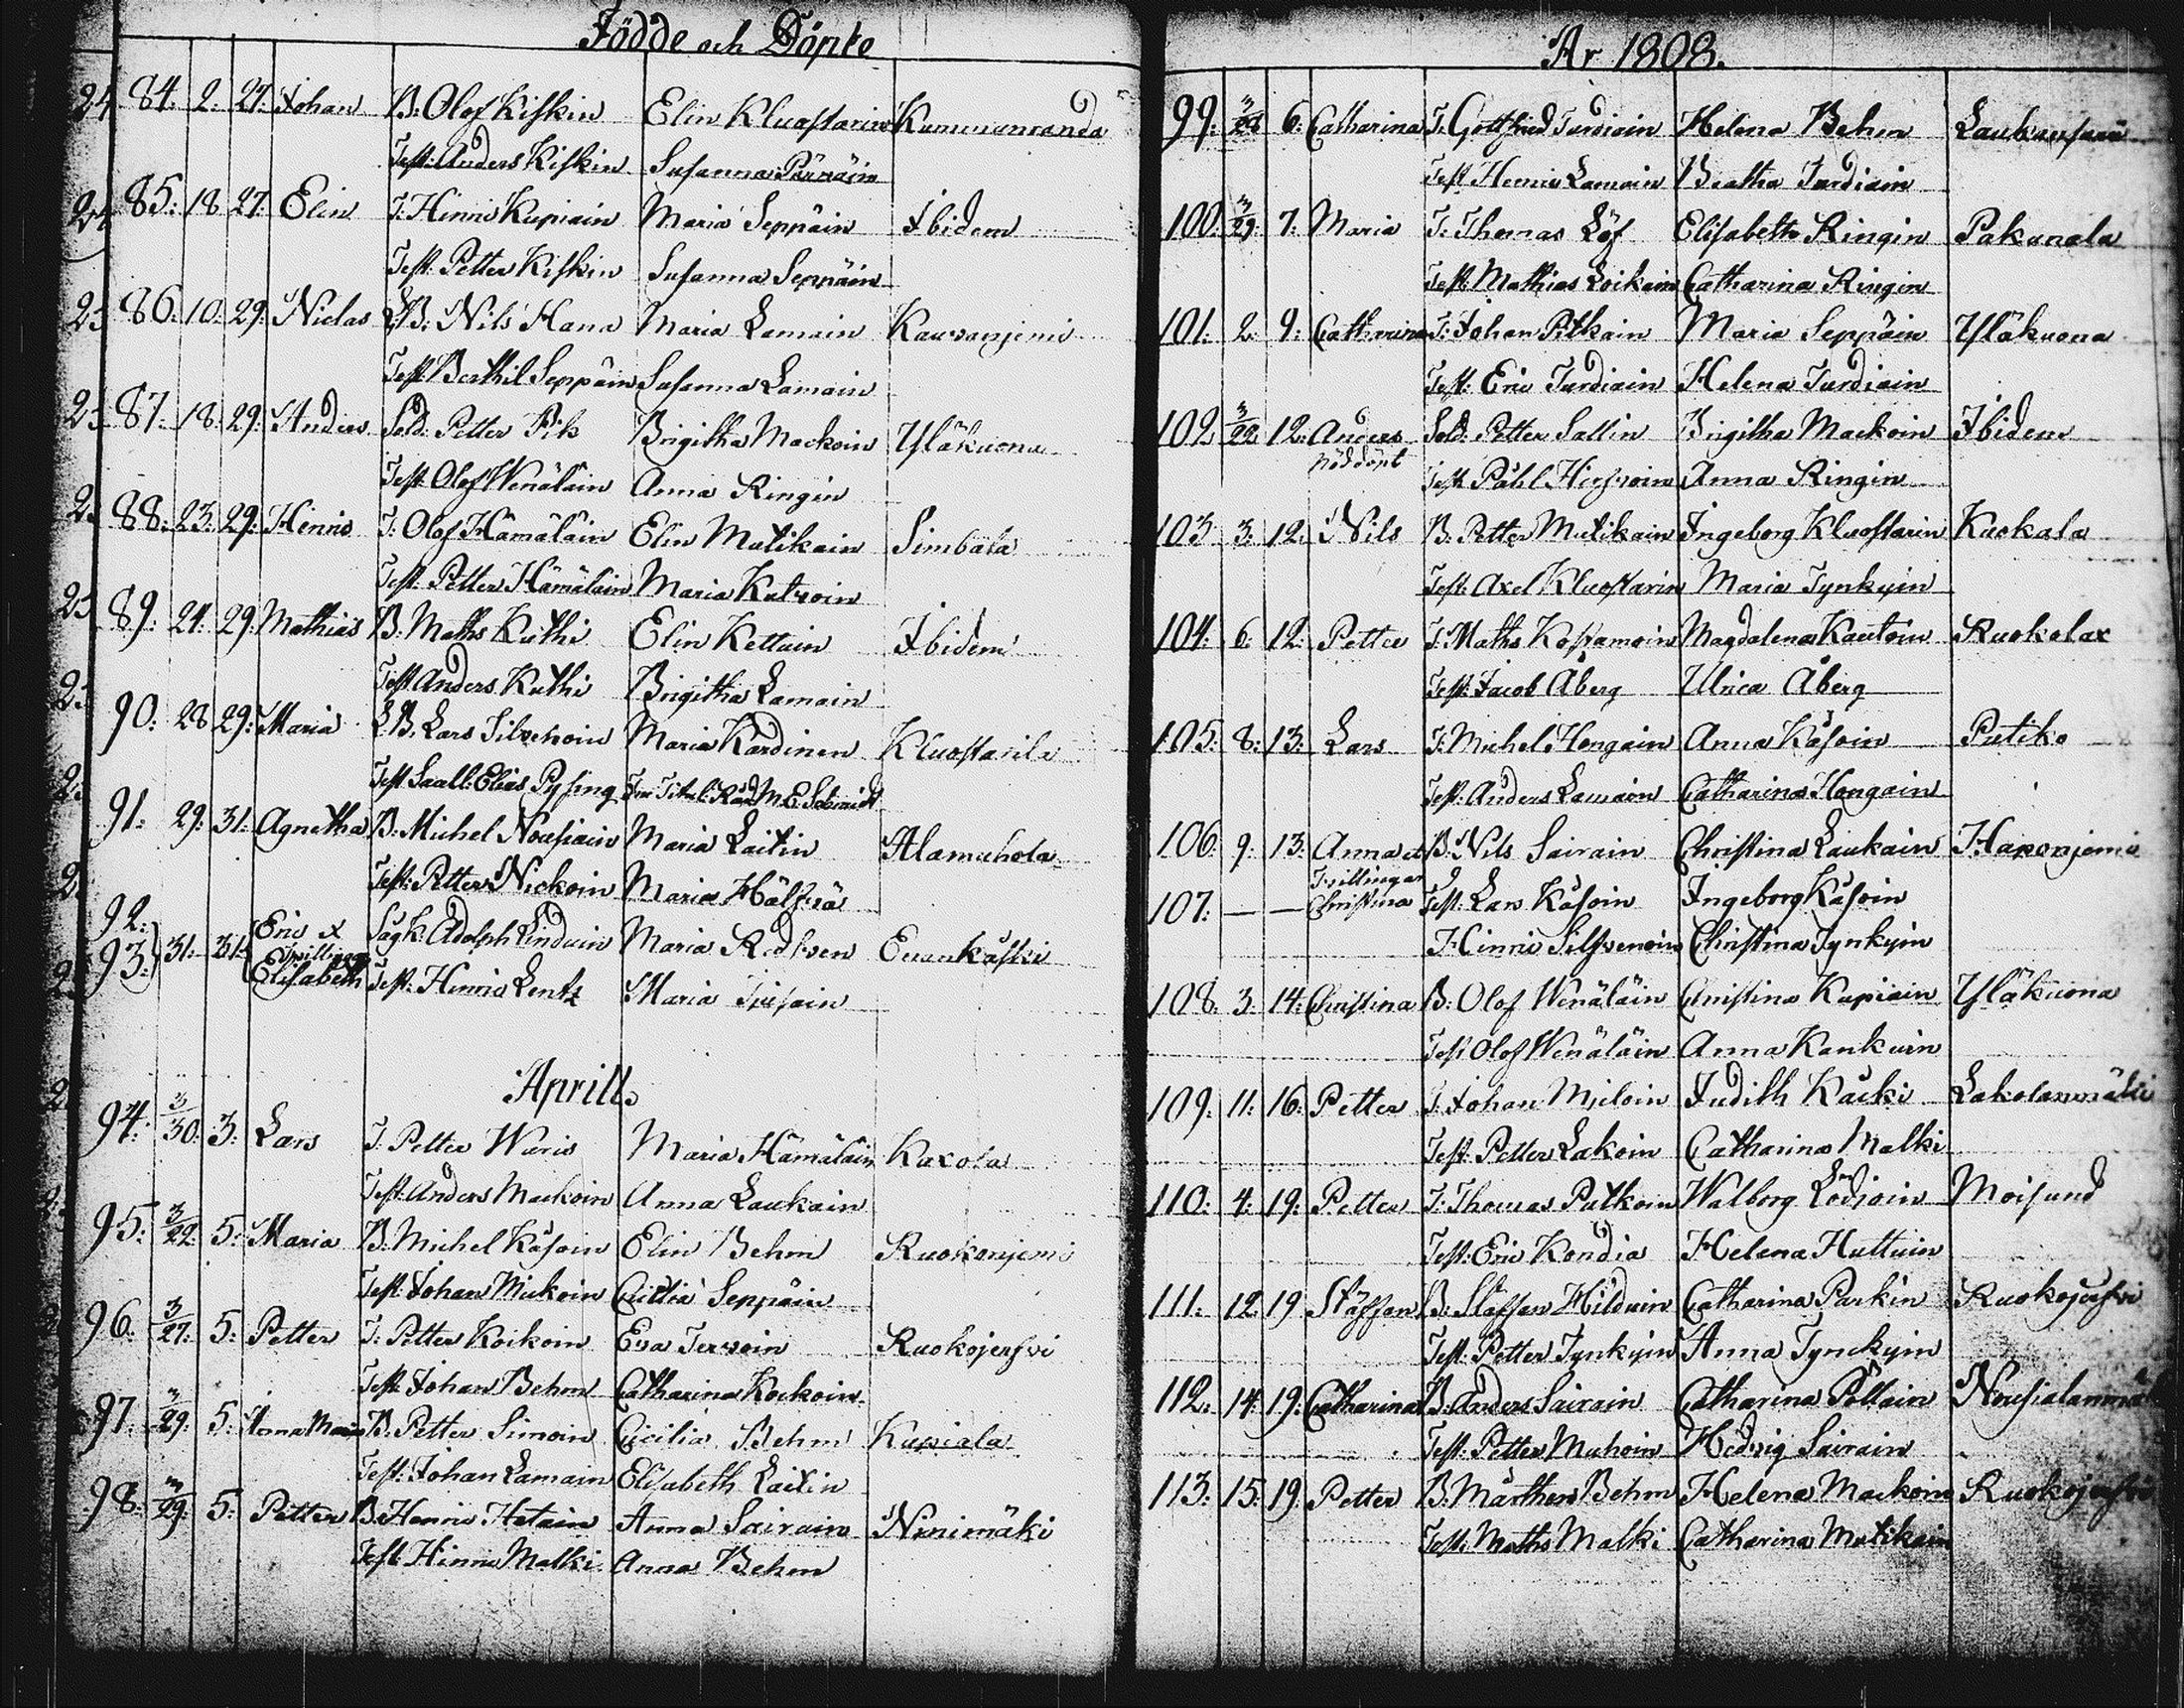 Födde och Döpte
84. 2. 27. Johan B. Olof Kiskin Elin Kluostarin Kummunranda
Test: Anders Kiskin Susanna Pärnäin
85: 18 27. Elin T: Hinric Kupiain Maria Seppäin Ibidem
Test: Petter Kiskin Susanna Seppäin
86. 10. 29. Niclas B: Nils Hana Maria Lamain
Test: Berthil Seppäin Susanna Lamain
87. 18. 29. Anders Sold: Petter Pik Brigitha Mackoin Yläkuona
Test: Olof Wenäläin Anna Ringin
88. 23. 29. Henric T: Olof Hämäläin Elin Mutikain Simbala
Test: Petter Hämäläin Maria Kutvoin
89. 24. 29. Mathias B: Maths Kuthi Elin Kettuin Ibidem
Test Anders Kuthi Brigitha Lamain
90. 28 29. Maria B. Lars Silvehoin Maria Kardinen Kluostarila
Test Elias Pysing M. E. Schmidt
91. 29. 31. Agnetha B. Michel Nousiain Maria Laitin Alamuhola
Test: Petter Nickoin Maria Hälfvä
92. Eric &
93. 31. 31. Tvillingar Sågk: Adolph Linduin Maria Rodsven Enankoski
Elisabeth Test: Henric Lentz Maria
Aprill.
94. 3/30. 3. Lars T. Petter Waris Maria Hämäläin Kaxola
Test: Anders Mackoin Anna Laukain
95. 3/29. 5. Maria B. Michel Käsoin Elin Behm Ruokonjemi
Test: Johan Mickoin Cicilia Seppäin
96. 3/27. 5. Petter T. Petter Koikoin Eva Tervoin Ruokojerfvi
Test: Johan Behm Catharina Kockoin
97. 3/29. 5. Anna Maria B. Petter Simoin Cicilia Behm Kupiala
Test: Johan Lamain Elisabeth Laitin
98. 3/29. 5. Petter B. Henric Hatain Anna Sairain Ninimäki
Test: Hinric Malki Anna Behm
År 1808.
99. 3/28 6. Catharina T. Gottfried Turdiain Helena Behm
Test Henric Lamain Beatha Turdiain
100. 3/29. 7. Maria T: Thomas Löf Elisabeth Ringin Pakunala
Test: Mathias Loikain Catharina Ringin
101. 2. 9. Catharina T: Johan Pitkain Maria Seppäin Yläkuona
Test: Eric Turdiain Helena Turdiain
102 3/22 12. Anders Sold: Petter Sallin Brigitha Mackoin Ibidem
nöddöpt Test Påhl Hirfvoin Anna Ringin
103. 3. 12. Nils B. Petter Mutikain Ingeborg Kluostarin Kuokala
Test: Axel Kluostarin Maria Tynkyin
104. 6. 12. Petter T: Maths Kossamoin Magdalena Kautoin Ruokolax
Test: Jacob Åberg Ulrica Åberg
105. 8. 13. Lars T: Michel Hongain Anna Käsoin Putiko
Test: Anders Lamain Catharina Hongain
106. 9. 13. Anna & B: Nils Sairain Christina Laukain Haponjemi
Tvillingar
107. — — Christina Test: Lars Käsoin Ingeborg Käsoin
Hinric Silfvenoin Christina Tynkyin
108. 3. 14. Christina B: Olof Wenäläin Christina Kupiain Yläkuona
Test Olof Wenäläin Anna Kankuin
109. 11. 16. Petter T: Johan Miloin Judith Kacki Lakolanmäki
Test: Petter Lakoin Catharina Malki
110. 4. 19. Petter T: Thomas Putkoin Walborg Lödjoin Moisund
Test: Eric Kondia Helena Huttuin
111. 12. 19 Staffan B: Staffan Hilduin Catharina Parkin Ruokojerfvi
Test: Petter Tynkyin Anna Tynckyin
112. 14. 19. Catharina B. Anders Sairain Catharina Pöllain
Test: Petter Muhoin Hedvig Sairain
113. 15. 19. Petter B. Mårthen Behm Helena Mackoin Ruokojerfvi
Test: Maths Malki Catharina Mutikain